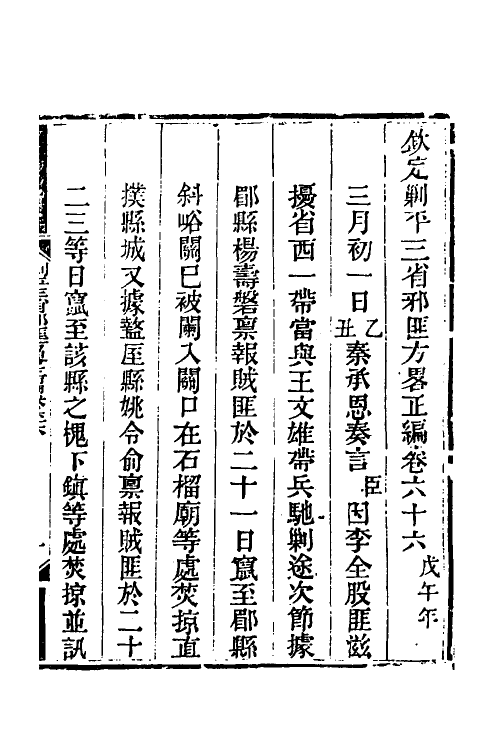 欽定剿平三省邪匪方畧正編卷六十六 戊午年
三月初一日乙丑秦承恩奏言臣因李全股匪滋
擾省西一帶當與王文雄帶兵馳剿途次節據
郿縣楊壽磐禀報賊匪於二十一日竄至郿縣
斜峪關已被闌入關口在石榴廟等處焚掠直
撲縣城又據盩厔縣姚令俞禀報賊匪於二十
二三等日竄至該縣之槐下鎮等處焚掠並訊